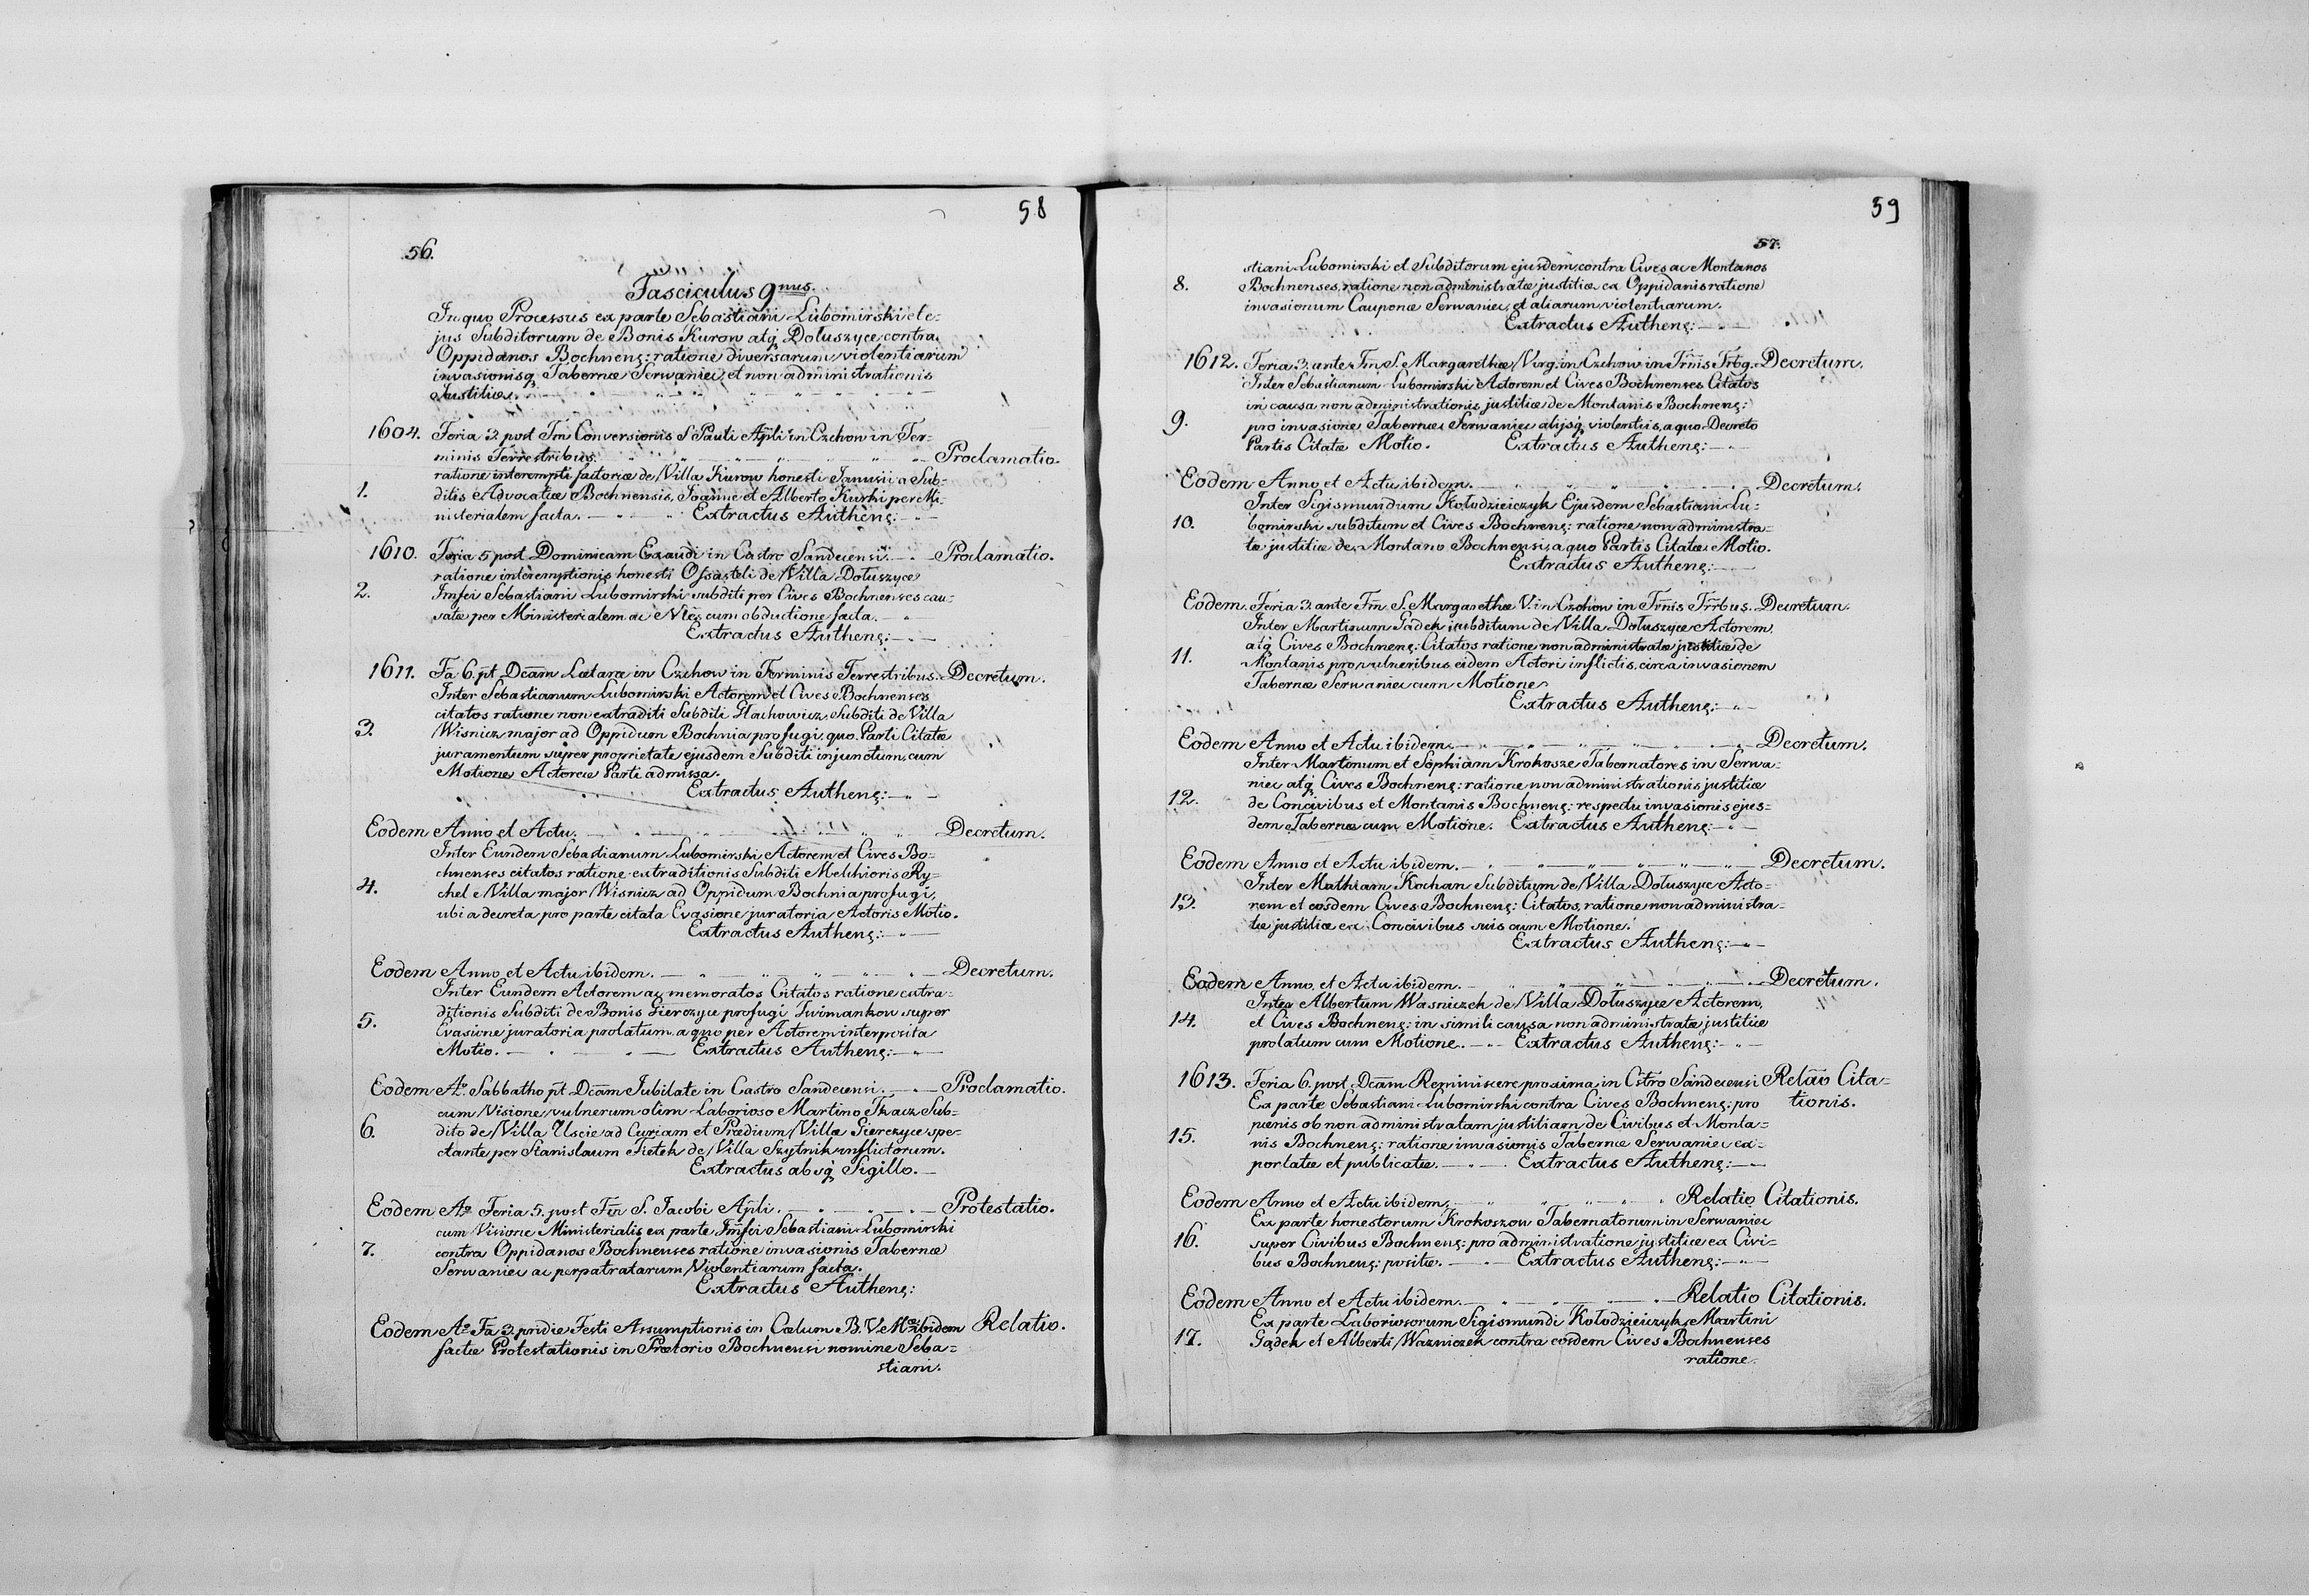 58
56.
Fasciculus 9nus.
In quo Processus ex parte Sebastiani Lubomirski et e-
jus Subditorum de Bonis Kurow atq Dołuszyce contra
Oppidanos Bochneng: ratione diversarum violentiarum
invasionisq Tabernæ Serwaniec, et non administrationis
Justitiæ.
1604. Feria 3. post Fm Conversionis S Pauli Apli in Czchow in Ter-
minis Terrestribus. Proclamatio.
ratione interempti factoriæ de Villa Kurow honesti Janusii a Sub-
1. ditis Advocatiæ Bochnensis, Joanne et Alberto Kurski per Mi-
nisterialem facta. Extractus Autheng:
1610. Feria 5 post Dominicam Exaudi in Castro Sandecensi. Proclamatio.
ratione interemptionis honesti Ossasteli de Villa Dołuszyce
2. Imfci Sebastiani Lubomirski subditi per Cives Bochnenses cau-
satæ per Ministerialem ac Nles cum obductione facta.
Extractus Autheng:
1611. Fa 6. pt Dcam Lætare in Czchow in Terminis Terrestribus. Decretum.
Inter Sebastianum Lubomirski Actorem et Cives Bochnenses
citatos ratione non extraditi Subditi Stachowicz, Subditi de Villa
3. Wisnicz major ad Oppidum Bochnia profugi, quo Parti Citatæ
juramentum super proprietate ejusdem Subditi injunctum, cum
Motione Actoreæ Parti admissa.
Extractus Autheng:
Eodem Anno et Actu. Decretum.
Inter Eundem Sebastianum Lubomirski Actorem et Cives Bo-
chnenses citatos ratione extraditionis Subditi Melchioris Ry-
4. chel e Villa major Wisnicz ad Oppidum Bochnia profugi,
ubi a decreta pro parte citata Evasione juratoria Actoris Motio.
Extractus Autheng:
Eodem Anno et Actu ibidem. Decretum.
Inter Eundem Actorem ac memoratos Citatos ratione extra-
ditionis Subditi de Bonis Gierczyce profugi Twimankow super
5. Evasione juratoria prolatum, a quo per Actorem interposita
Motio. Extractus Autheng:
Eodem Ao. Sabbatho pt Dcam Jubilate in Castro Sandecensi. Proclamatio.
cum Visione vulnerum olim Laborioso Martino Tkacz Sub-
6. dito de Villa Uscie ad Curiam et Prædium Villæ Gierczyce spe-
ctante per Stanislaum Fietek de Villa Szytnik inflictorum.
Extractus absq Sigillo.
Eodem Ao Feria 5. post Fm S. Jacobi Apli. Protestatio.
cum Visione Ministerialis ex parte Imfci Sebastiani Lubomirski
7. contra Oppidanos Bochnenses ratione invasionis Tabernæ
Serwaniec ac perpatratarum Violentiarum facta.
Extractus Autheng:
Eodem Ao Fa 3. pridie Festi Assumptionis in Cœlum B. V. Mæ ibidem Relatio.
factæ Protestationis in Prætorio Bochnensi nomine Seba-
stiani.
59
57.
stiani Lubomirski et Subditorum ejusdem, contra Cives ac Montanos
8. Bochnenses, ratione non administratæ justitiæ ex Oppidanis ratione
invasionum Cauponæ Serwaniec, et aliarum violentiarum.
Extractus Autheng:
1612. Feria 3. ante Fm S. Margarethæ Virg. in Czchow in Trmis Trbg. Decretum.
Inter Sebastianum Lubomirski Actorem et Cives Bochnenses Citatos
in causa non administrationis justitiæ de Montanis Bochneng:
9. pro invasione Tabernæ Serwaniec alijsq violentiis, a quo Decreto
Partis Citatæ Motio. Extractus Autheng:
Eodem Anno et Actu ibidem. Decretum.
Inter Sigismundum Kołodzieiczyk Ejusdem Sebastiani Lu-
10. bomirski subditum et Cives Bochneng: ratione non administra-
tæ justitiæ de Montano Bochnensi, a quo Partis Citatæ Motio.
Extractus Autheng:
Eodem. Feria 3. ante Fm S. Margarethæ V. in Czchow in Trmis Trrbus. Decretum.
Inter Martinum Gądek subditum de Villa Dołuszyce Actorem,
atq Cives Bochneng: Citatos ratione non administratæ justitiæ de
11. Montanis pro vulneribus eidem Actori inflictis, circa invasionem
Tabernæ Serwaniec cum Motione.
Extractus Autheng:
Eodem Anno et Actu ibidem. Decretum.
Inter Martinum et Sophiam Krokosze Tabernatores in Serwa-
niec atq Cives Bochneng: ratione non administrationis justitiæ
12. de Concivibus et Montanis Bochneng: respectu invasionis ejus-
dem Tabernæ cum Motione. Extractus Autheng:
Eodem Anno et Actu ibidem. Decretum.
Inter Mathiam Kochan Subditum de Villa Dołuszyce Acto-
13. rem et eosdem Cives Bochneng: Citatos, ratione non administra-
tæ justitiæ ex Concivibus suis cum Motione.
Extractus Autheng:
Eodem Anno et Actu ibidem. Decretum.
Inter Albertum Wasniczek de Villa Dołuszyce Actorem,
14. et Cives Bochneng: in simili causa non administratæ justitiæ
prolatum cum Motione. Extractus Autheng:
1613. Feria 6. post Dcam Reminiscere proxima in Cstro Sandecensi Relao Cita-
Ex parte Sebastiani Lubomirski contra Cives Bochneng: pro tionis.
pœnis ob non administratam justitiam de Civibus et Monta-
15. nis Bochneng: ratione invasionis Tabernæ Serwaniec ex-
portatæ et publicatæ. Extractus Autheng:
Eodem Anno et Actu ibidem. Relatio Citationis.
Ex parte honestorum Krokoszow Tabernatorum in Serwaniec
16. super Civibus Bochneng: pro administratione justitiæ ex Civi-
bus Bochneng: positæ. Extractus Autheng:
Eodem Anno et Actu ibidem. Relatio Citationis.
Ex parte Laboriosorum Sigismundi Kołodzieiczyk, Martini
17. Gądek et Alberti Wazniczek contra eosdem Cives Bochnenses
ratione.